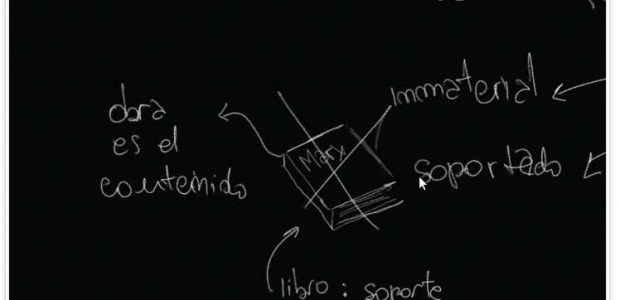 obra
es el
contenido
Marx
Inmaterial
soportado
libro : soporte